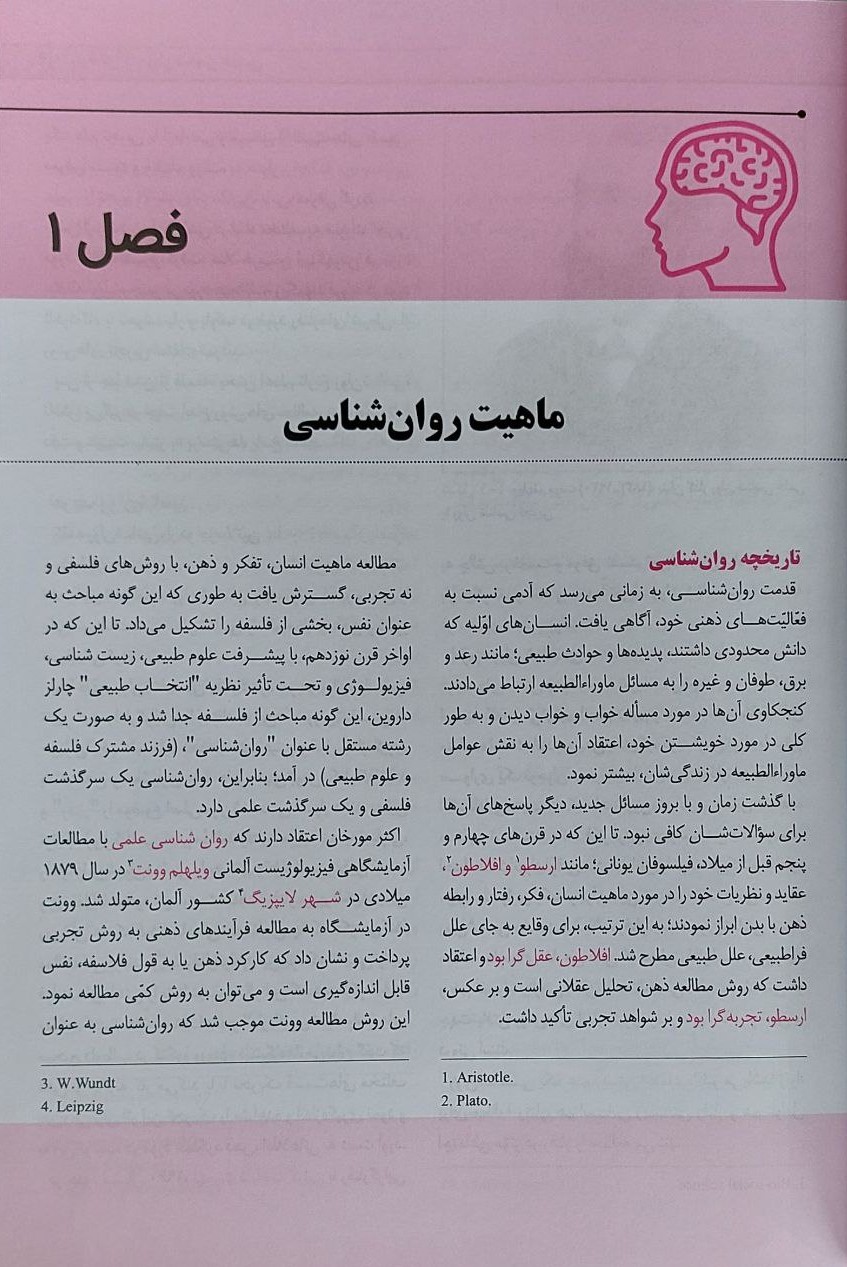 فصل ۱
ماهیت روان‌شناسی
تاریخچه روان‌شناسی
قدمت روان‌شناسی، به زمانی می‌رسد که آدمی نسبت به
فعّالیّت‌های ذهنی خود، آگاهی یافت. انسان‌های اوّلیه که
دانش محدودی داشتند، پدیده‌ها و حوادث طبیعی؛ مانند رعد و
برق، طوفان و غیره را به مسائل ماوراءالطبیعه ارتباط می‌دادند.
کنجکاوی آن‌ها در مورد مسأله خواب و خواب دیدن و به طور
کلی در مورد خویشتن خود، اعتقاد آن‌ها را به نقش عوامل
ماوراءالطبیعه در زندگی‌شان، بیشتر نمود.
با گذشت زمان و با بروز مسائل جدید، دیگر پاسخ‌های آن‌ها
برای سؤالات‌شان کافی نبود. تا این که در قرن‌های چهارم و
پنجم قبل از میلاد، فیلسوفان یونانی؛ مانند ارسطو۱ و افلاطون۲،
عقاید و نظریات خود را در مورد ماهیت انسان، فکر، رفتار و رابطه
ذهن با بدن ابراز نمودند؛ به این ترتیب، برای وقایع به جای علل
فراطبیعی، علل طبیعی مطرح شد. افلاطون، عقل‌گرا بود و اعتقاد
داشت که روش مطالعه ذهن، تحلیل عقلانی است و بر عکس،
ارسطو، تجربه‌گرا بود و بر شواهد تجربی تأکید داشت.
1. Aristotle.
2. Plato.
مطالعه ماهیت انسان، تفکر و ذهن، با روش‌های فلسفی و
نه تجربی، گسترش یافت به طوری که این گونه مباحث به
عنوان نفس، بخشی از فلسفه را تشکیل می‌داد. تا این که در
اواخر قرن نوزدهم، با پیشرفت علوم طبیعی، زیست شناسی،
فیزیولوژی و تحت تأثیر نظریه "انتخاب طبیعی" چارلز
داروین، این گونه مباحث از فلسفه جدا شد و به صورت یک
رشته مستقل با عنوان "روان‌شناسی"، (فرزند مشترک فلسفه
و علوم طبیعی) در آمد؛ بنابراین، روان‌شناسی یک سرگذشت
فلسفی و یک سرگذشت علمی دارد.
اکثر مورخان اعتقاد دارند که روان شناسی علمی با مطالعات
آزمایشگاهی فیزیولوژیست آلمانی ویلهلم وونت۳ در سال ۱۸۷۹
میلادی در شهر لایپزیگ۴ کشور آلمان، متولد شد. وونت
در آزمایشگاه به مطالعه فرآیندهای ذهنی به روش تجربی
پرداخت و نشان داد که کارکرد ذهن یا به قول فلاسفه، نفس
قابل اندازه‌گیری است و می‌توان به روش کمّی مطالعه نمود.
این روش مطالعه وونت موجب شد که روان‌شناسی به عنوان
3. W.Wundt
4. Leipzig